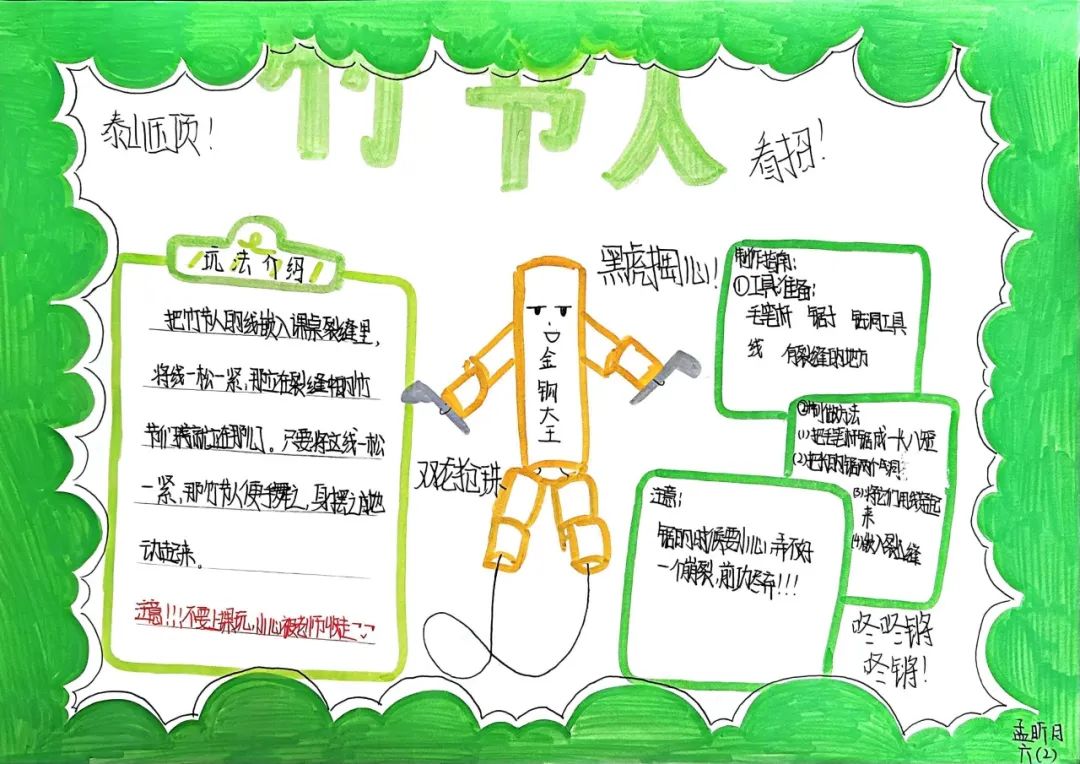 竹节人
泰山压顶！
看招！
玩法介绍
把竹节人的线嵌入课桌裂缝里，
将线一松一紧，那立在裂缝中的竹
节们
只要将这线一松
一紧，那竹节人便手舞之，身摆之
动起来。
注意！！！不要上课玩，小心被老师收走
黑虎掏心！
金钢大王
双龙抢珠
制作指南：
①工具准备：
毛笔杆 锯子 钻洞工具
线 有裂缝的地方
②制做方法
(1)把毛笔杆锯成一大八短
(2)把
(3)将它们用线
来
(4)嵌入裂缝
注意：
锯的时候要小心，弄不好
一个崩裂，前功尽弃！！！
咚咚锵
咚锵！
孟昕月
六(2)